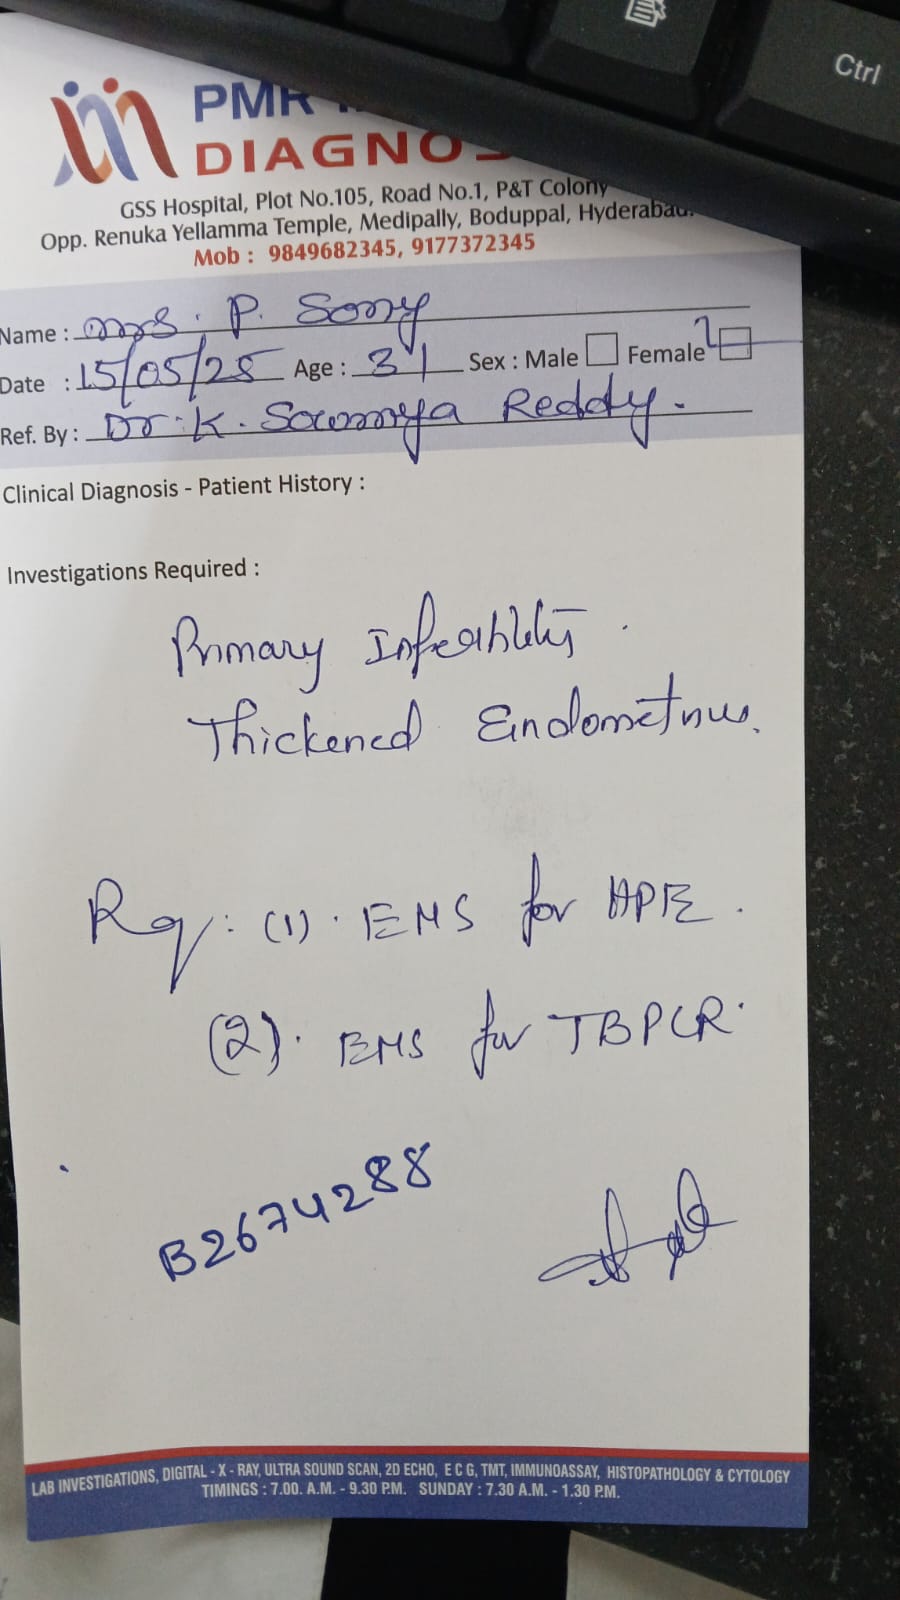 Ctrl
PMR
DIAGNOS
GSS Hospital, Plot No.105, Road No.1, P&T Colony
Opp. Renuka Yellamma Temple, Medipally, Boduppal, Hyderabad.
Mob : 9849682345, 9177372345
Name : Mrs. P. Sony
Date : 15/05/25 Age : 31 Sex : Male Female
Ref. By : Dr. K. Sowmya Reddy.
Clinical Diagnosis - Patient History :
Investigations Required :
Primary Infertility.
Thickened Endometrium.
Rq: (1). EMS for HPE.
(2). EMS for TBPCR.
B2674288
LAB INVESTIGATIONS, DIGITAL - X - RAY, ULTRA SOUND SCAN, 2D ECHO, E C G, TMT, IMMUNOASSAY, HISTOPATHOLOGY & CYTOLOGY
TIMINGS : 7.00. A.M. - 9.30 P.M. SUNDAY : 7.30 A.M. - 1.30 P.M.